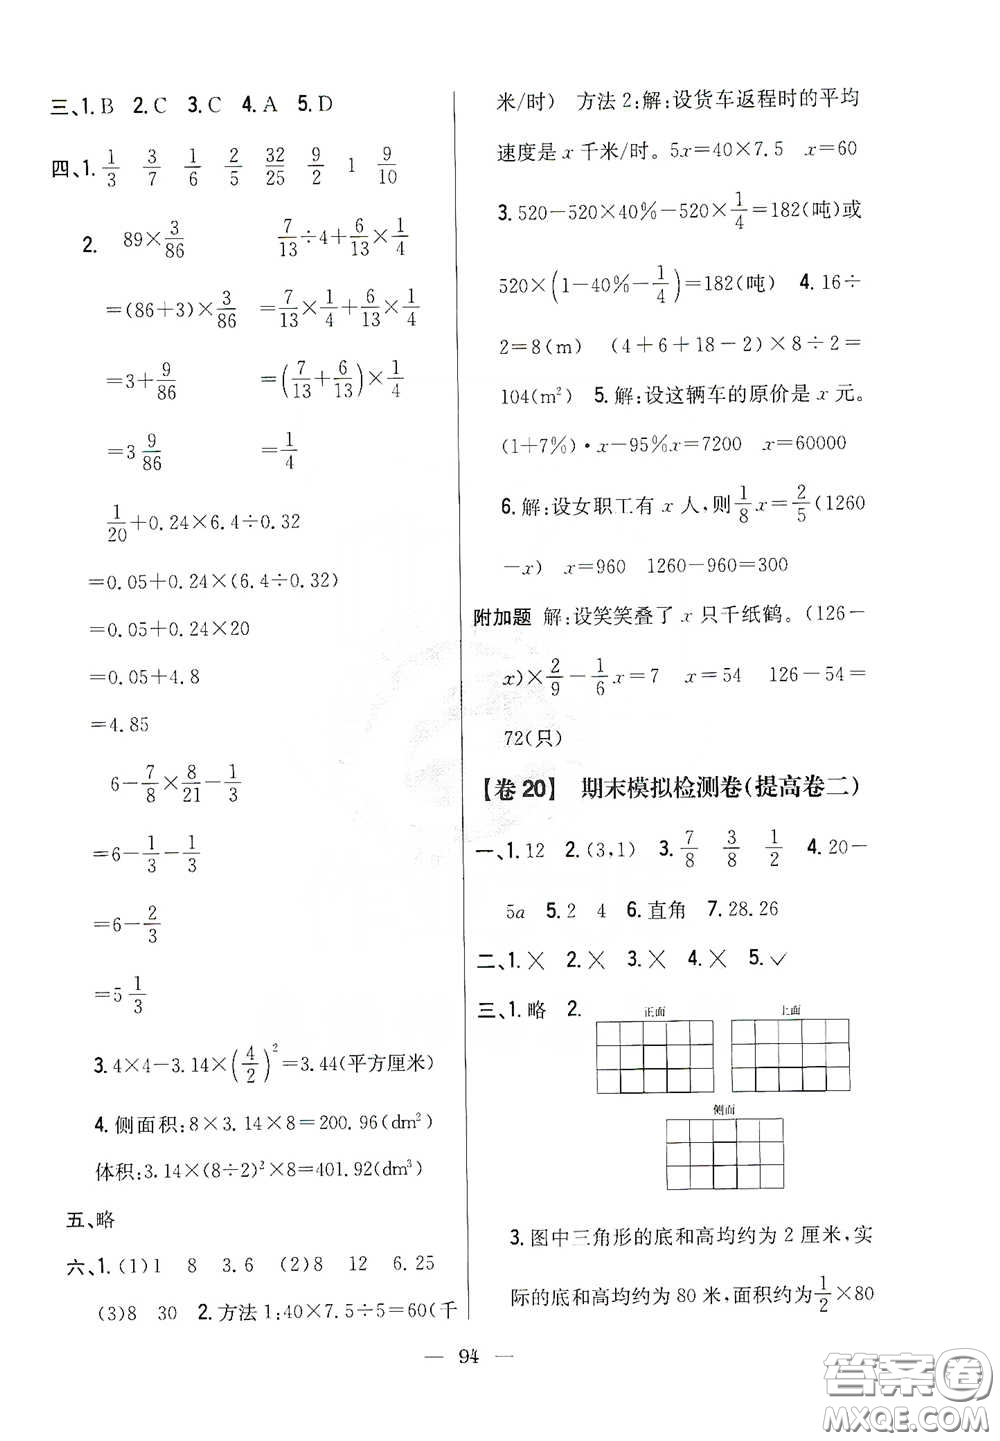 三、1.B 2.C 3.C 4.A 5.D
四、1. 1/3 3/7 1/6 2/5 32/25 9/2 1 9/10
2. 89×3/86 7/13÷4+6/13×1/4
=(86+3)×3/86 =7/13×1/4+6/13×1/4
=3+9/86 =(7/13+6/13)×1/4
=3 9/86 =1/4
1/20+0.24×6.4÷0.32
=0.05+0.24×(6.4÷0.32)
=0.05+0.24×20
=0.05+4.8
=4.85
6-7/8×8/21-1/3
=6-1/3-1/3
=6-2/3
=5 1/3
3.4×4-3.14×(4/2)²=3.44(平方厘米)
4.侧面积:8×3.14×8=200.96(dm²)
体积:3.14×(8÷2)²×8=401.92(dm³)
五、略
六、1.(1)1 8 3.6 (2)8 12 6.25
(3)8 30 2.方法1:40×7.5÷5=60(千
米/时) 方法2:解:设货车返程时的平均
速度是x千米/时。5x=40×7.5 x=60
3.520-520×40%-520×1/4=182(吨)或
520×(1-40%-1/4)=182(吨) 4.16÷
2=8(m) (4+6+18-2)×8÷2=
104(m²) 5.解:设这辆车的原价是x元。
(1+7%)·x-95%x=7200 x=60000
6.解:设女职工有x人,则1/8x=2/5(1260
-x) x=960 1260-960=300
附加题 解:设笑笑叠了x只千纸鹤。(126-
x)×2/9-1/6x=7 x=54 126-54=
72(只)
【卷20】 期末模拟检测卷(提高卷二)
一、1.12 2.(3,1) 3.7/8 3/8 1/2 4.20-
5a 5.2 4 6.直角 7.28.26
二、1.× 2.× 3.× 4.× 5.✓
三、1.略 2.
正面 上面
侧面
3.图中三角形的底和高均约为2厘米,实
际的底和高均约为80米,面积约为1/2×80
— 94 —
答案圈
MXQE.COM